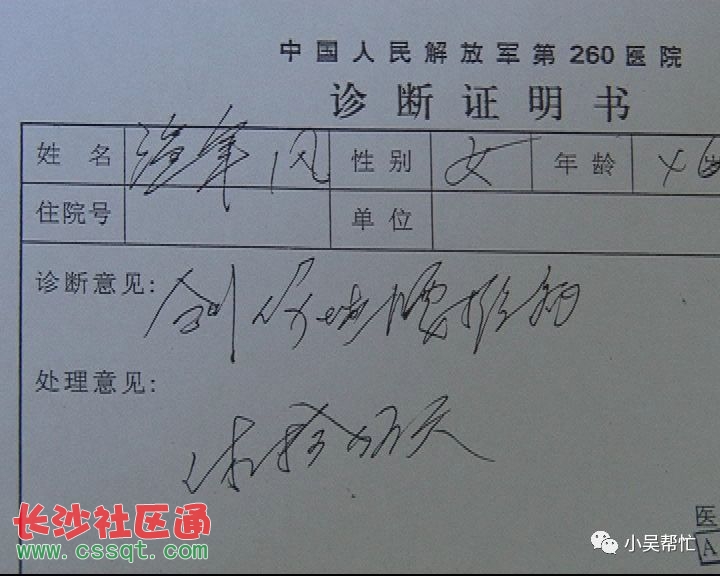 中国人民解放军第260医院
诊断证明书
姓名 性别 女 年龄
住院号 单位
诊断意见: 创伤性腰
处理意见:
休拾伍天
医
A
长沙社区通
www.cssqt.com
小吴帮忙